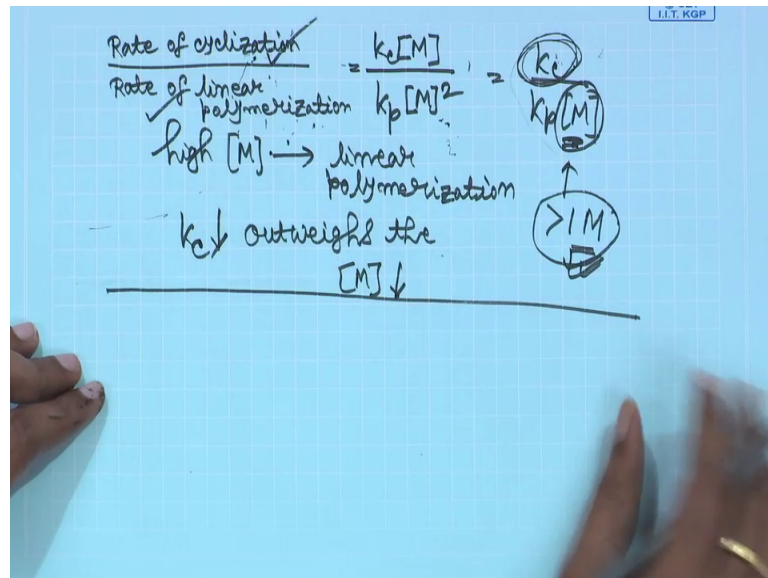 I.I.T. KGP
Rate of cyclization / Rate of linear polymerization = kc[M] / kp[M]² = kc / kp[M]
high [M] → linear
polymerization
>1M
kc↓ outweighs the
[M]↓